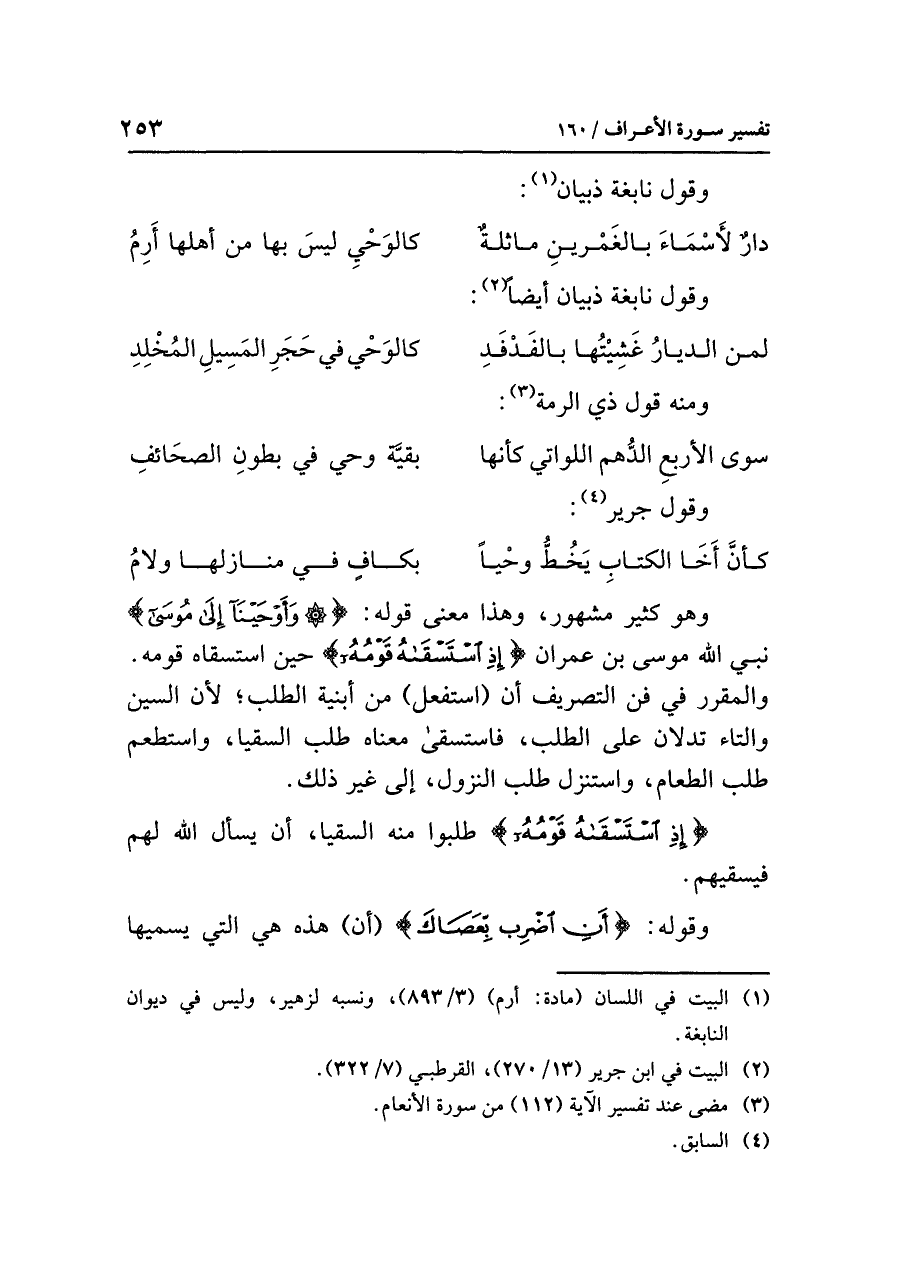 تفسير سورة الأعراف / ١٦٠ ٢٥٣
وقول نابغة ذبيان(١):
دارٌ لأَسْمَاءَ بالغَمْرينِ ماثلةٌ كالوَحْيِ ليسَ بها من أهلها أَرِمُ
وقول نابغة ذبيان أيضاً(٢):
لمن الديارُ غَشِيْتُها بالفَدْفَدِ كالوَحْي في حَجَرِ المَسِيلِ المُخْلِدِ
ومنه قول ذي الرمة(٣):
سوى الأربعِ الدُّهم اللواتي كأنها بقيَّة وحي في بطونِ الصحَائفِ
وقول جرير(٤):
كأنَّ أَخَا الكتابِ يَخُطُّ وحْياً بكافٍ في منازلها ولامُ
وهو كثير مشهور، وهذا معنى قوله: ﴿ ۞ وَأَوْحَيْنَآ إِلَىٰ مُوسَىٰٓ ﴾
نبي الله موسى بن عمران ﴿ إِذِ ٱسْتَسْقَىٰهُ قَوْمُهُۥٓ ﴾ حين استسقاه قومه.
والمقرر في فن التصريف أن (استفعل) من أبنية الطلب؛ لأن السين
والتاء تدلان على الطلب، فاستسقىٰ معناه طلب السقيا، واستطعم
طلب الطعام، واستنزل طلب النزول، إلى غير ذلك.
﴿ إِذِ ٱسْتَسْقَىٰهُ قَوْمُهُۥٓ ﴾ طلبوا منه السقيا، أن يسأل الله لهم
فيسقيهم.
وقوله: ﴿ أَنِ ٱضْرِب بِّعَصَاكَ ﴾ (أن) هذه هي التي يسميها
(١) البيت في اللسان (مادة: أرم) (٨٩٣/٣)، ونسبه لزهير، وليس في ديوان
النابغة.
(٢) البيت في ابن جرير (١٣/ ٢٧٠)، القرطبي (٧/ ٣٢٢).
(٣) مضى عند تفسير الآية (١١٢) من سورة الأنعام.
(٤) السابق.